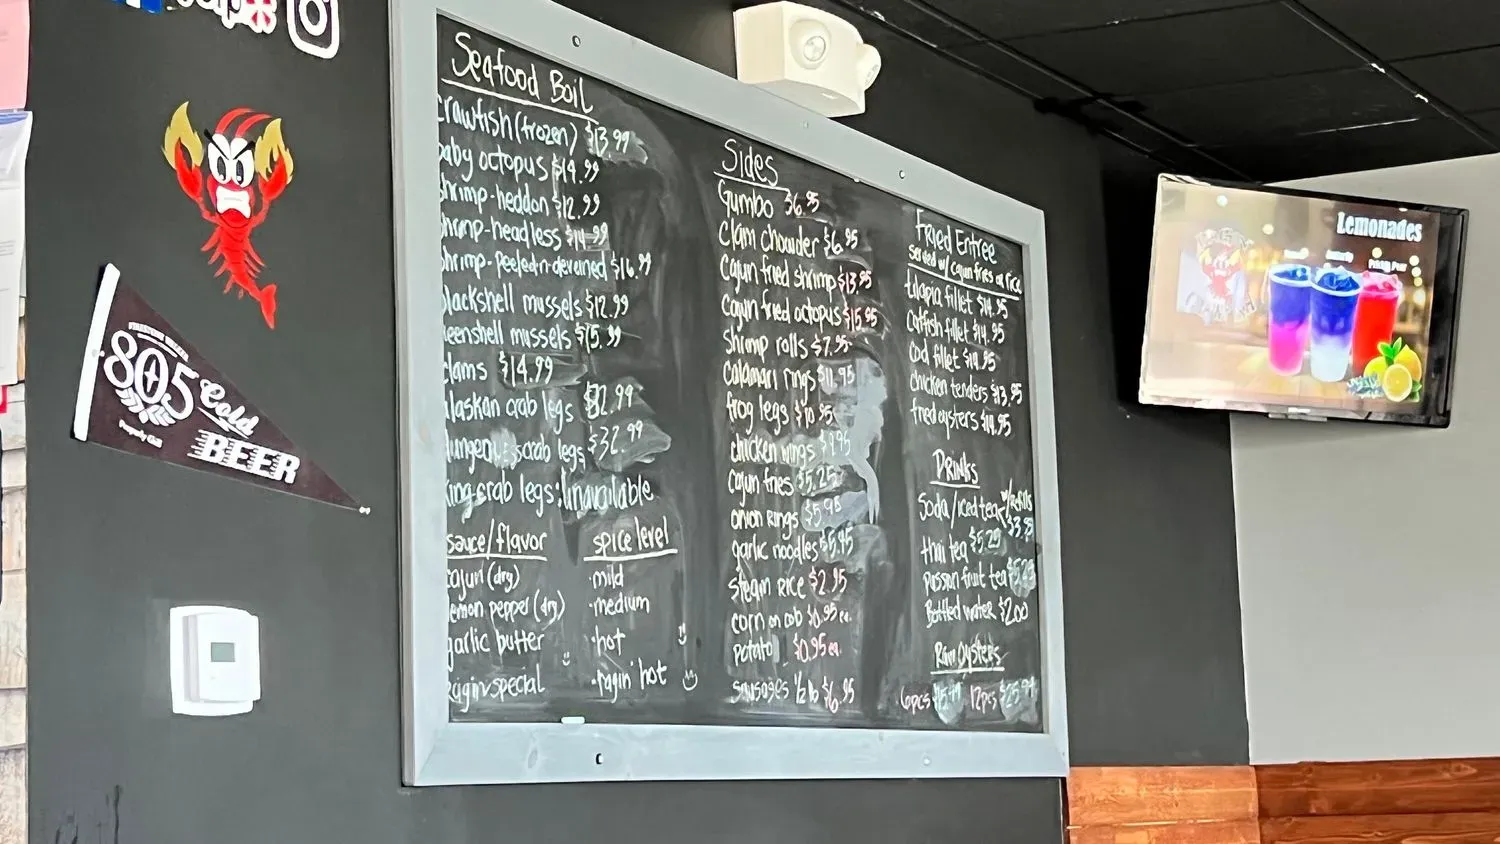 Yelp
805
Cold
BEER
Properly Chill
Seafood Boil
crawfish (frozen) $13.99
baby octopus $14.99
shrimp-headon $12.99
shrimp-headless $14.99
shrimp-peeled n deveined $16.99
blackshell mussels $12.99
eenshell mussels $15.99
clams $14.99
alaskan crab legs $32.99
crab legs $32.99
king crab legs: unavailable
sauce/flavor
cajun (dry)
lemon pepper (dry)
garlic butter
ragin special
spice level
·mild
·medium
·hot
·ragin' hot
Sides
Gumbo $6.95
Clam chowder $6.95
Cajun fried shrimp $13.95
Cajun fried octopus $15.95
Shrimp rolls $7.95
Calamari rings $11.95
frog legs $10.95
chicken wings
cajun fries $5.25
onion rings $5.95
garlic noodles $5.95
Steam Rice $2.95
corn on cob $0.95 ea.
potato $0.95 ea
sausages 1/2 lb $6.95
Fried Entree
served w/ cajun fries or rice
tilapia fillet $14.95
Catfish fillet $14.95
Cod fillet $14.95
chicken tenders $13.95
fried oysters $14.95
Drinks
Soda/iced tea w/refills $3.95
thai tea $5.25
passion fruit tea $5.25
Bottled water $2.00
Raw Oysters
6pcs 12pcs
Lemonades
Prickly Pear